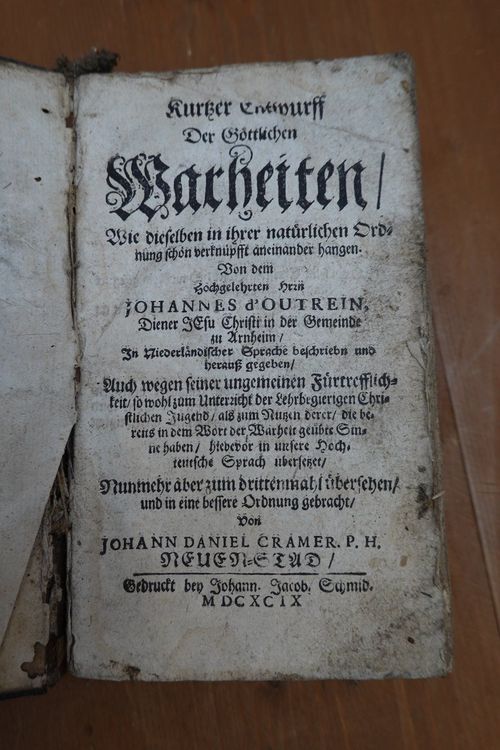 Kurtzer Entwurff
Der Göttlichen
Warheiten/
Wie dieselben in ihrer natürlichen Ord-
nung schön verknüpfft aneinander hangen.
Von dem
Hochgelehrten Hrrn
JOHANNES d'OUTREIN,
Diener JEsu Christi in der Gemeinde
zu Arnheim/
In Niederländischer Sprache beschriebn und
herauß gegeben/
Auch wegen seiner ungemeinen Fürtrefflich-
keit/ so wohl zum Unterricht der Lehrbegierigen Chri-
stlichen Jugend/ als zum Nutzen derer/ die be-
reits in dem Wort der Warheit geübte Sin-
ne haben/ hiebevor in unsere Hoch-
teutsche Sprach übersetzet/
Nunmehr aber zum drittenmahl übersehen/
und in eine bessere Ordnung gebracht/
Von
JOHANN DANIEL CRAMER. P. H.
NEUEN-STAD/
Gedruckt bey Johann. Jacob. Schmid.
MDCXCIX